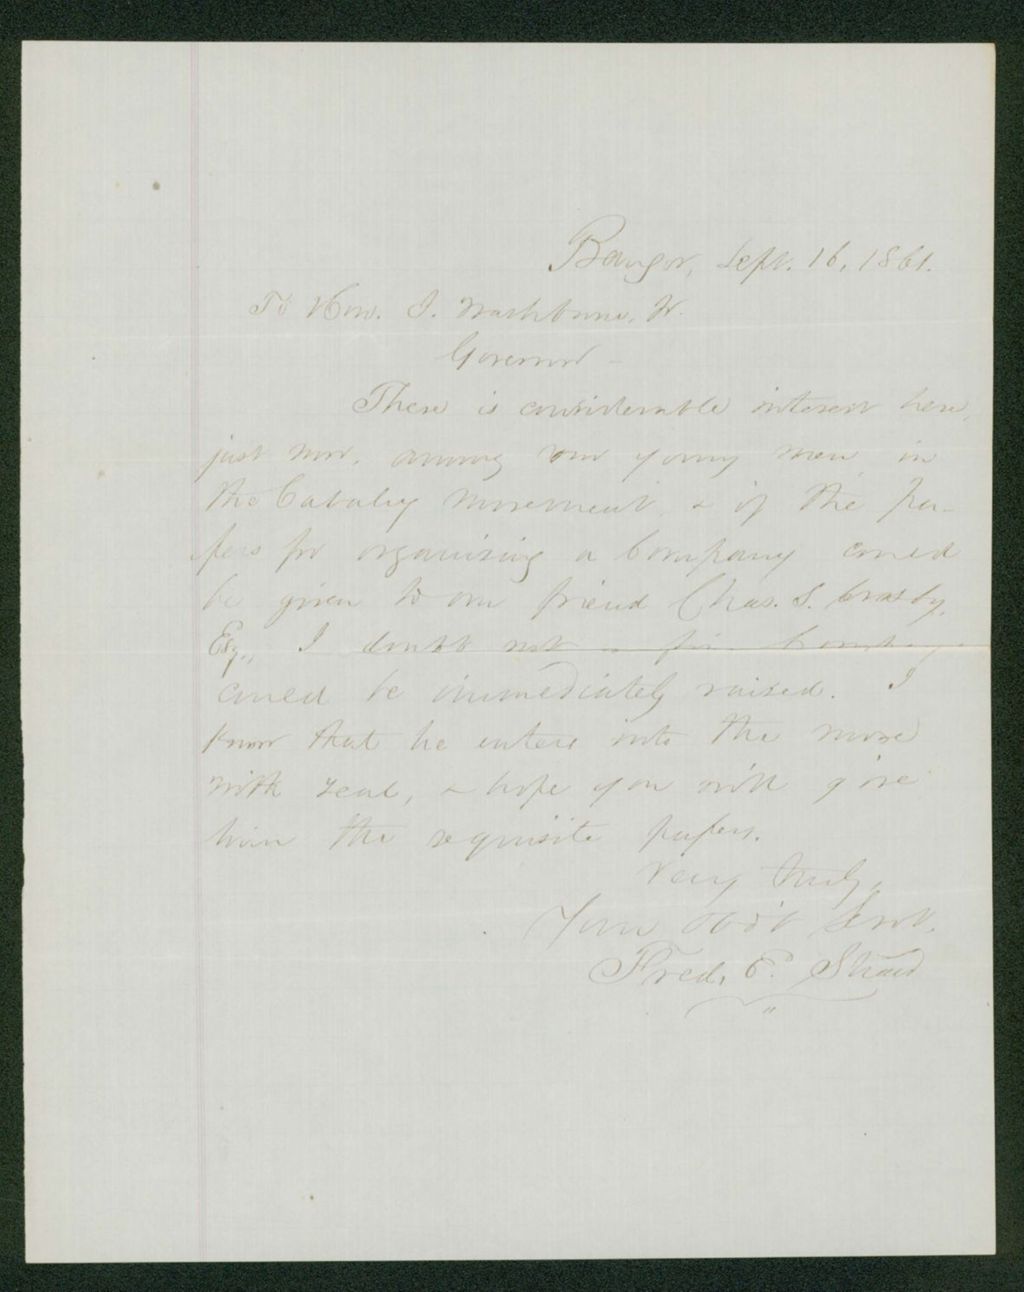 Bangor, Sept. 16, 1861.
To Hon. I. Washburn, Jr.
Governor —
There is considerable interest here,
just now, among our young men in
the Cavalry movement, & if the pa-
pers for organizing a Company could
be given to our friend Chas. S. Crosby,
Esq., I doubt not a fine Company
could be immediately raised. I
know that he enters into the move
with zeal, & hope you will give
him the requisite papers.
Very truly,
Your Ob'd't Servt.
Fred. E. Shaw